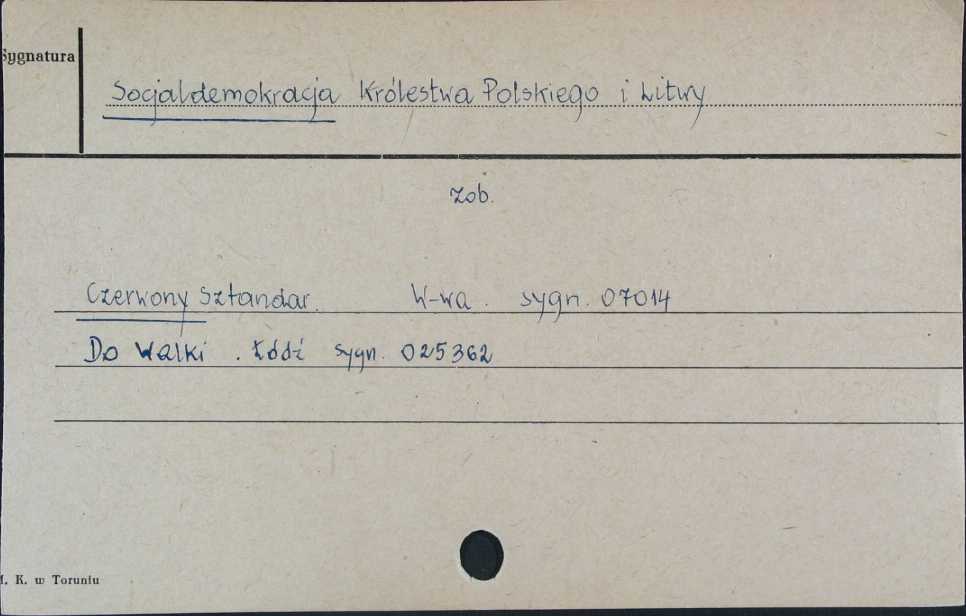 Sygnatura
Socjaldemokracja Królestwa Polskiego i Litwy
zob.
Czerwony Sztandar. W-wa. sygn. 07014
Do Walki. Łódź sygn. 025362
K. w Toruniu